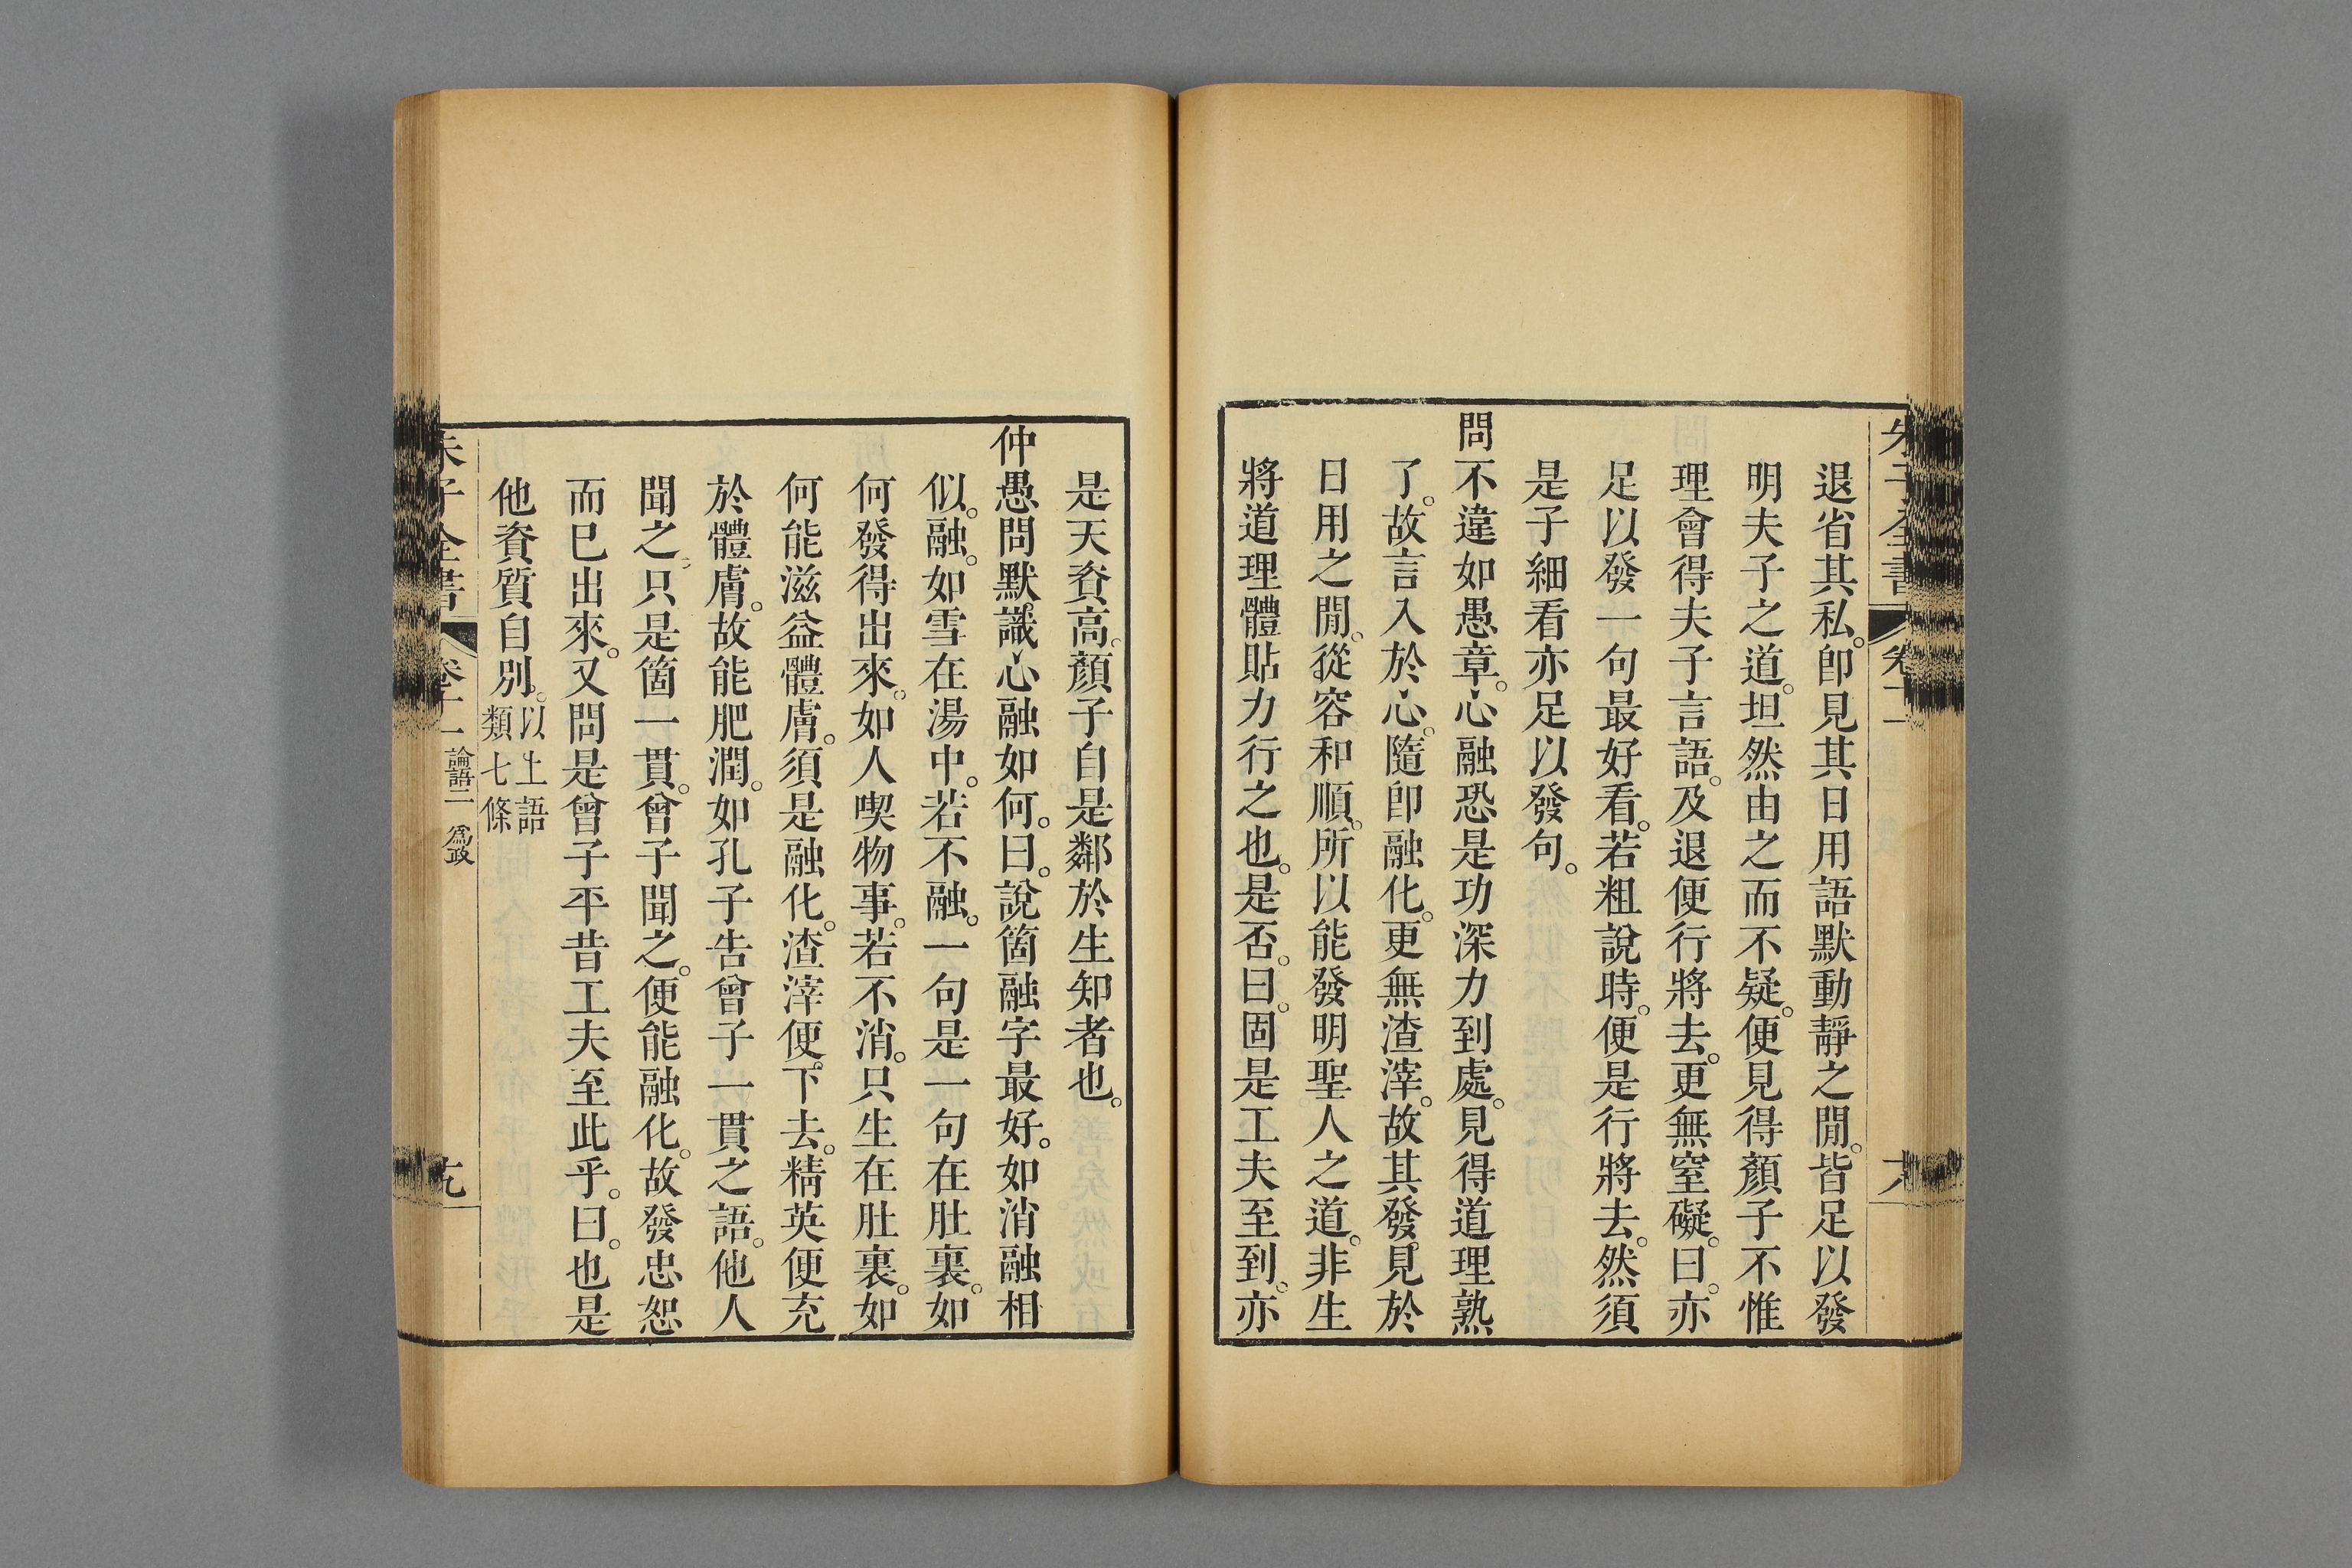 朱子全書 卷十一
退省其私。卽見其日用語默動靜之閒。皆足以發
明夫子之道。坦然由之而不疑。便見得顏子不惟
理會得夫子言語。及退便行將去。更無窒礙。曰。亦
足以發一句最好看。若粗說時。便是行將去。然須
是子細看亦足以發句。
問不違如愚章。心融恐是功深力到處。見得道理熟
了。故言入於心。隨卽融化。更無渣滓。故其發見於
日用之閒。從容和順。所以能發明聖人之道。非生
將道理體貼力行之也。是否。曰。固是工夫至到。亦
是天資高。顏子自是鄰於生知者也。
仲愚問默識心融如何。曰。說箇融字最好。如消融相
似。融。如雪在湯中。若不融。一句是一句在肚裏。如
何發得出來。如人喫物事。若不消。只生在肚裏。如
何能滋益體膚。須是融化。渣滓便下去。精英便充
於體膚。故能肥潤。如孔子告曾子一貫之語。他人
聞之。只是箇一貫。曾子聞之。便能融化。故發忠恕
而已出來。又問是曾子平昔工夫至此乎。曰。也是
他資質自別。以上語
類七條
朱子全書 卷十一 論語二 爲政 九